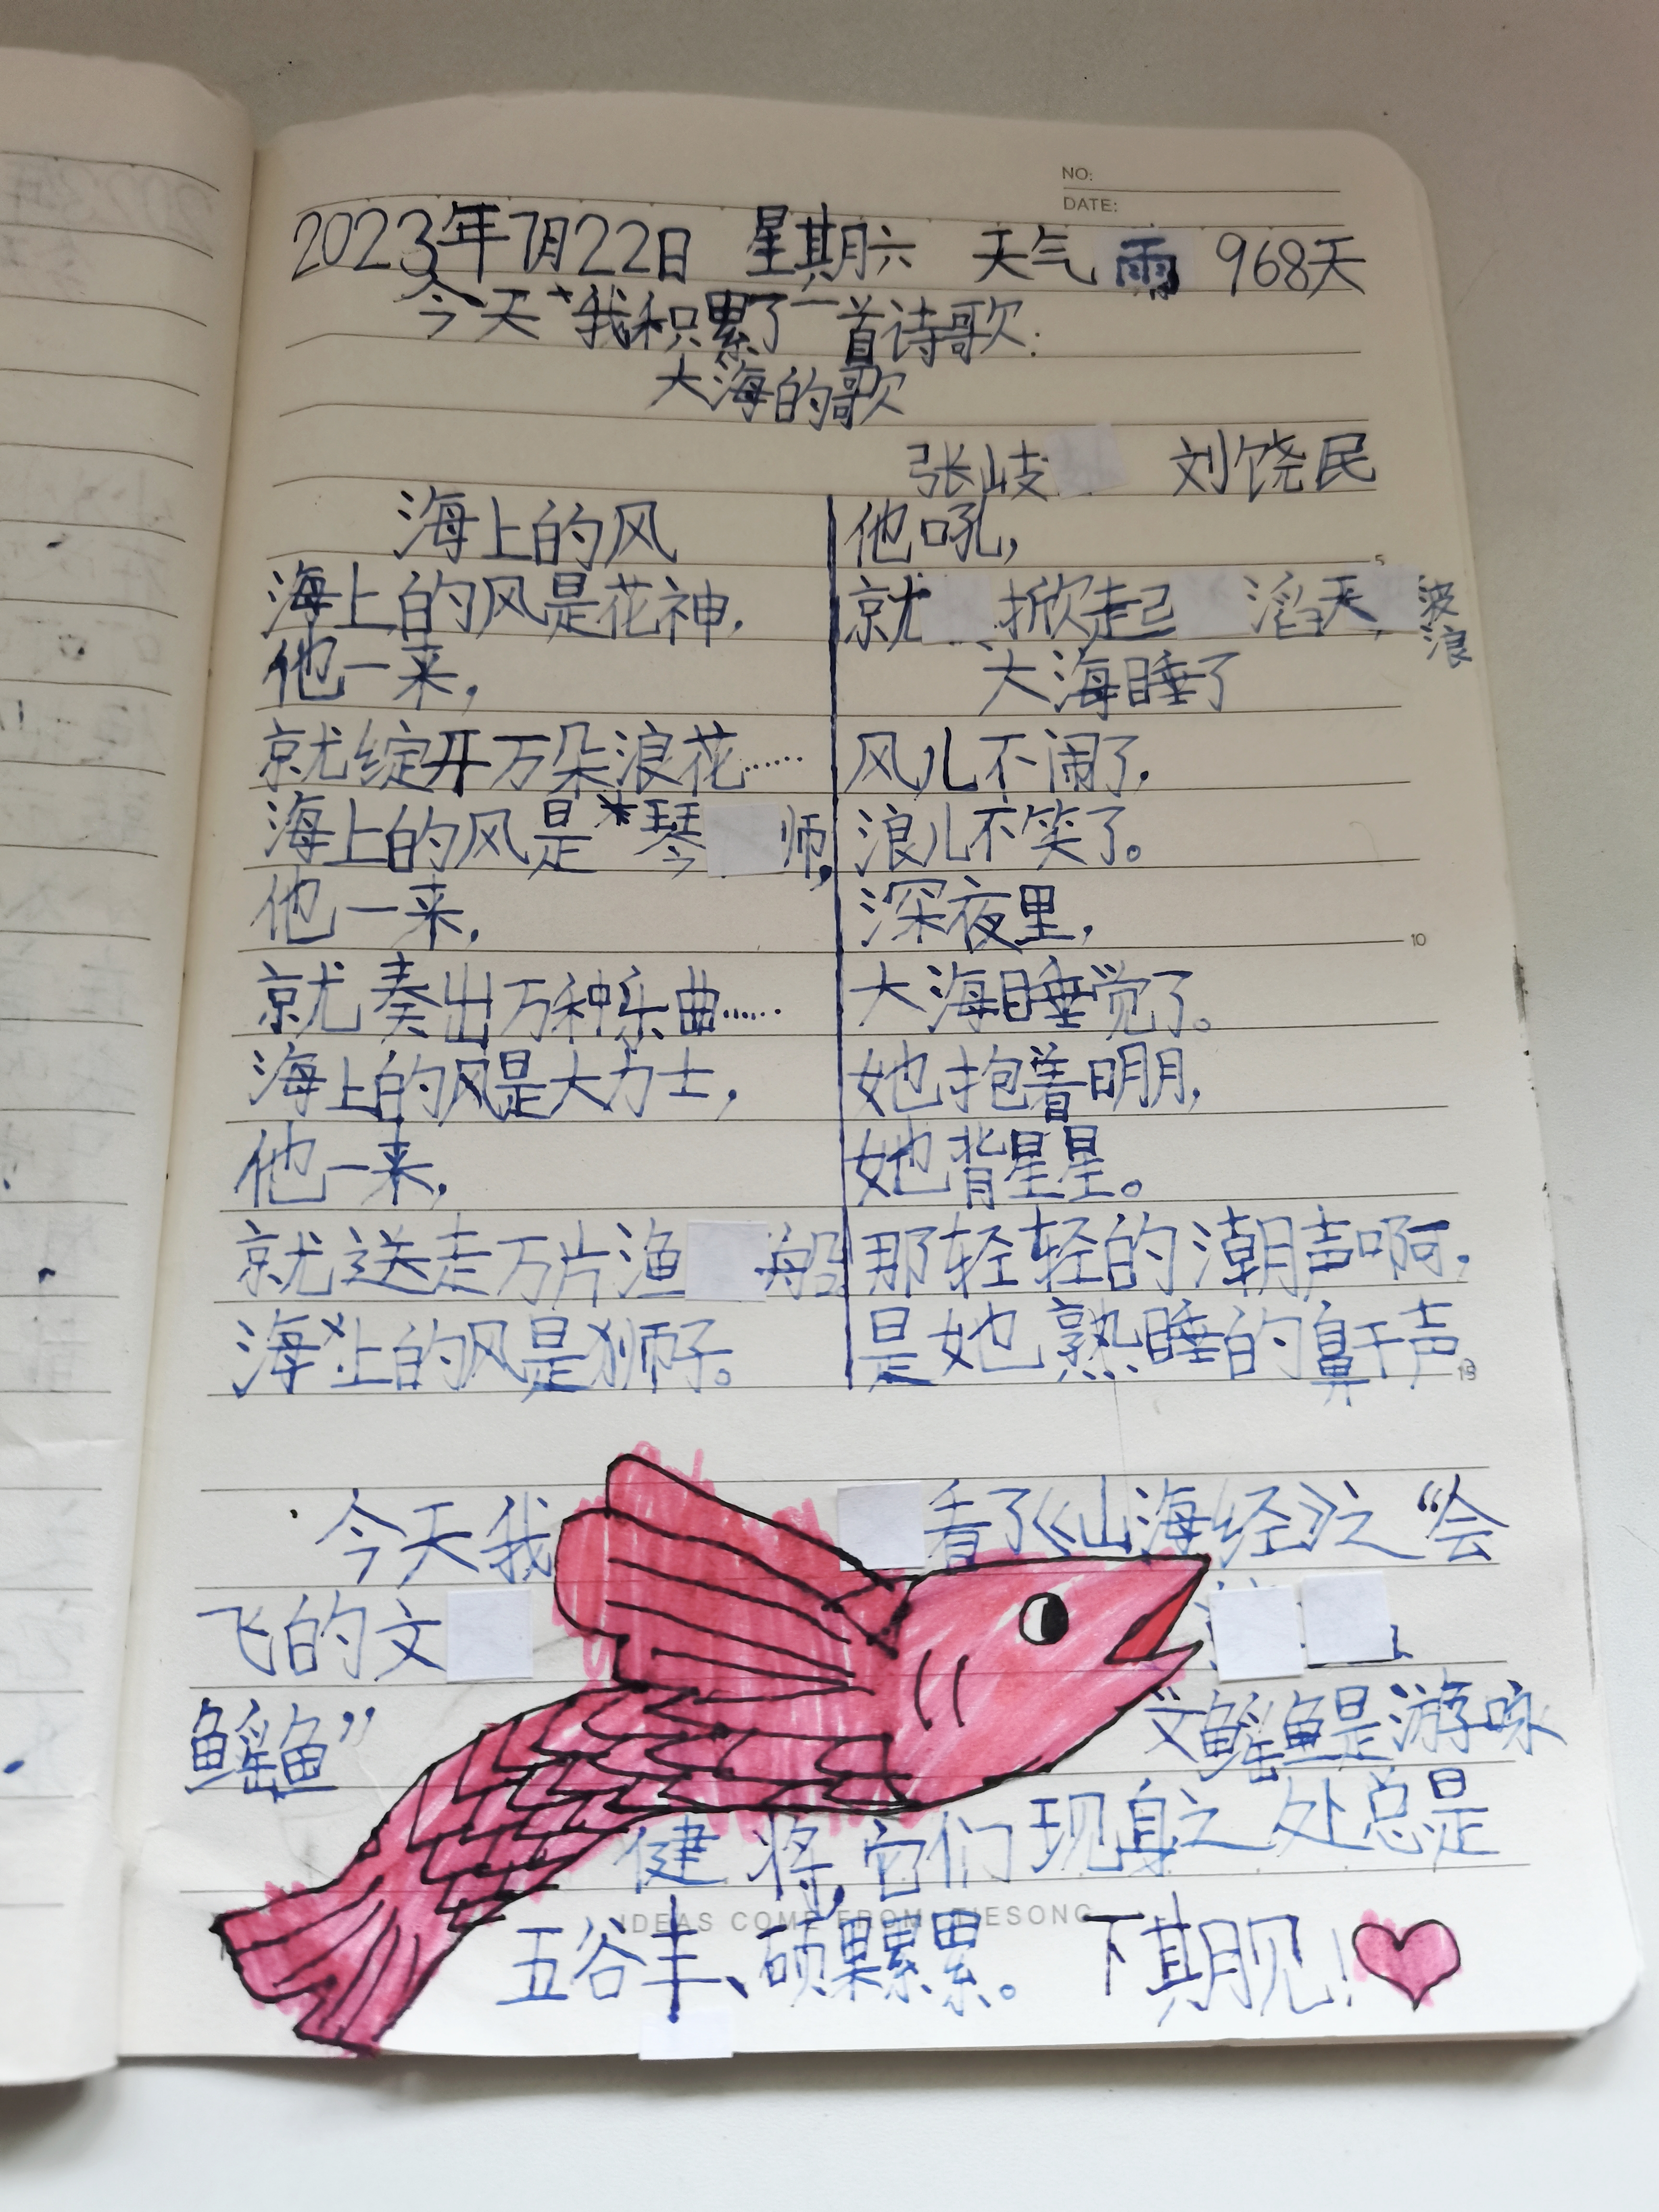 NO:
DATE:
2023年7月22日 星期六 天气 雨 968天
今天我积累了一首诗歌:
大海的歌
张岐 刘饶民
海上的风
海上的风是花神,
他一来,
就绽开万朵浪花……
海上的风是琴师,
他一来,
就奏出万种乐曲……
海上的风是大力士,
他一来,
就送走万片渔船
海上的风是狮子。
他吼,
就掀起滔天波浪
大海睡了
风儿不闹了,
浪儿不笑了。
深夜里,
大海睡觉了。
她抱着明月,
她背星星。
那轻轻的潮声啊,
是她熟睡的鼾声
5
10
15
今天我看了《山海经》之“会
飞的文
鳐鱼” 文鳐鱼是游咏
健将,它们现身之处总是
IDEAS COME FROM TIESONG
五谷丰、硕果累累。 下期见!